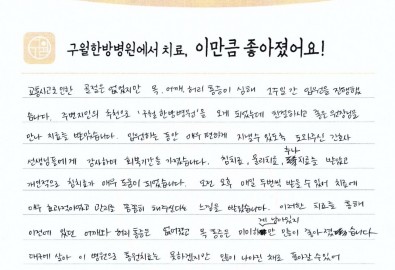 구월한방병원에서 치료, 이만큼 좋아졌어요!
교통사고로 인한 골절은 없었지만 목, 어깨, 허리 통증이 심해 2주일 간 입원을 진행했
습니다. 주변지인의 추천으로 '구월한방병원'을 오게 되었는데 친절하시고 좋은 원장님을
만나 치료를 받았습니다. 입원하는 동안 아주 편하게 지낼수 있도록 도와주신 간호사
선생님들에게 감사하며 회복기간을 가졌습니다. 침치료, 물리치료, 추나치료를 받았고
개인적으로 침치료가 매우 도움이 되었습니다. 오전 오후 매일 두번씩 받을 수 있어 치료에
아주 효과적이었고 관리를 꼼꼼히 해주신다는 느낌을 받았습니다. 이러한 치료를 통해
이전에 있던 어깨와 허리 통증은 없어졌고 목 통증은 미미하게 남아있지만 많이 좋아졌습니다
대구에 살아 이 병원으로 통원치료는 못하겠지만 많이 나아진 채로 돌아갈 수 있어